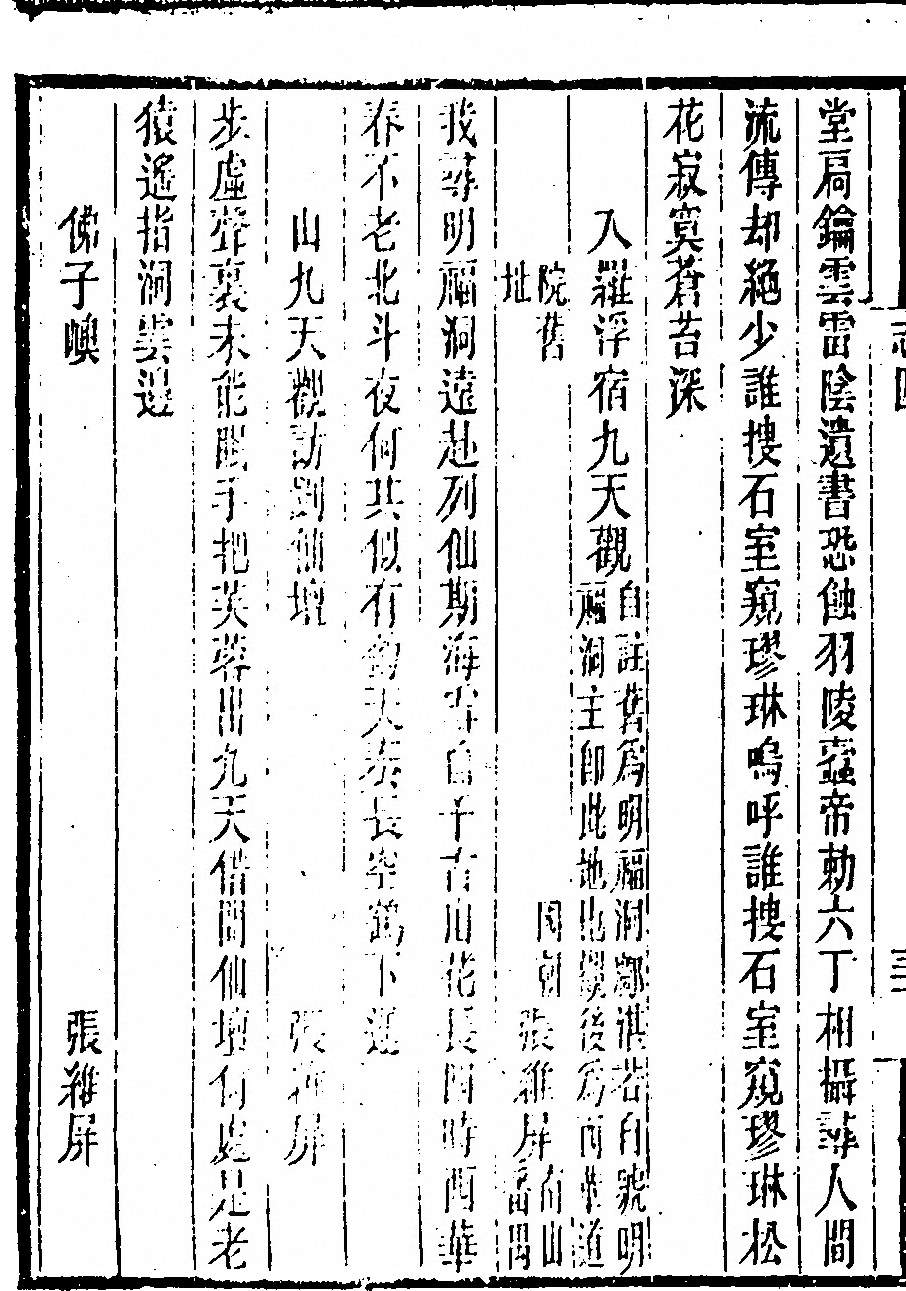 堂扃鑰雲雷陰遺書恐蝕羽陵蠹帝勅六丁相攝尋人間
流傳却絕少誰搜石室窺璆琳嗚呼誰搜石室窺璆琳松
花寂寞蒼苔深
入羅浮宿九天觀
自註舊為明福洞鄒淇若自號明
福洞主即此地也觀後為南華道
院舊
址
國朝張維屏
南山
番禺
我尋明福洞遠赴列仙期海雪自千古山花長四時西華
春不老北斗夜何其似有鈞天奏長空鶴下遲
由九天觀訪劉仙壇 張維屏
步虛聲裏未能眠手把芙蓉出九天借問仙壇何處是老
猿遙指洞雲邊
佛子㠗 張維屏